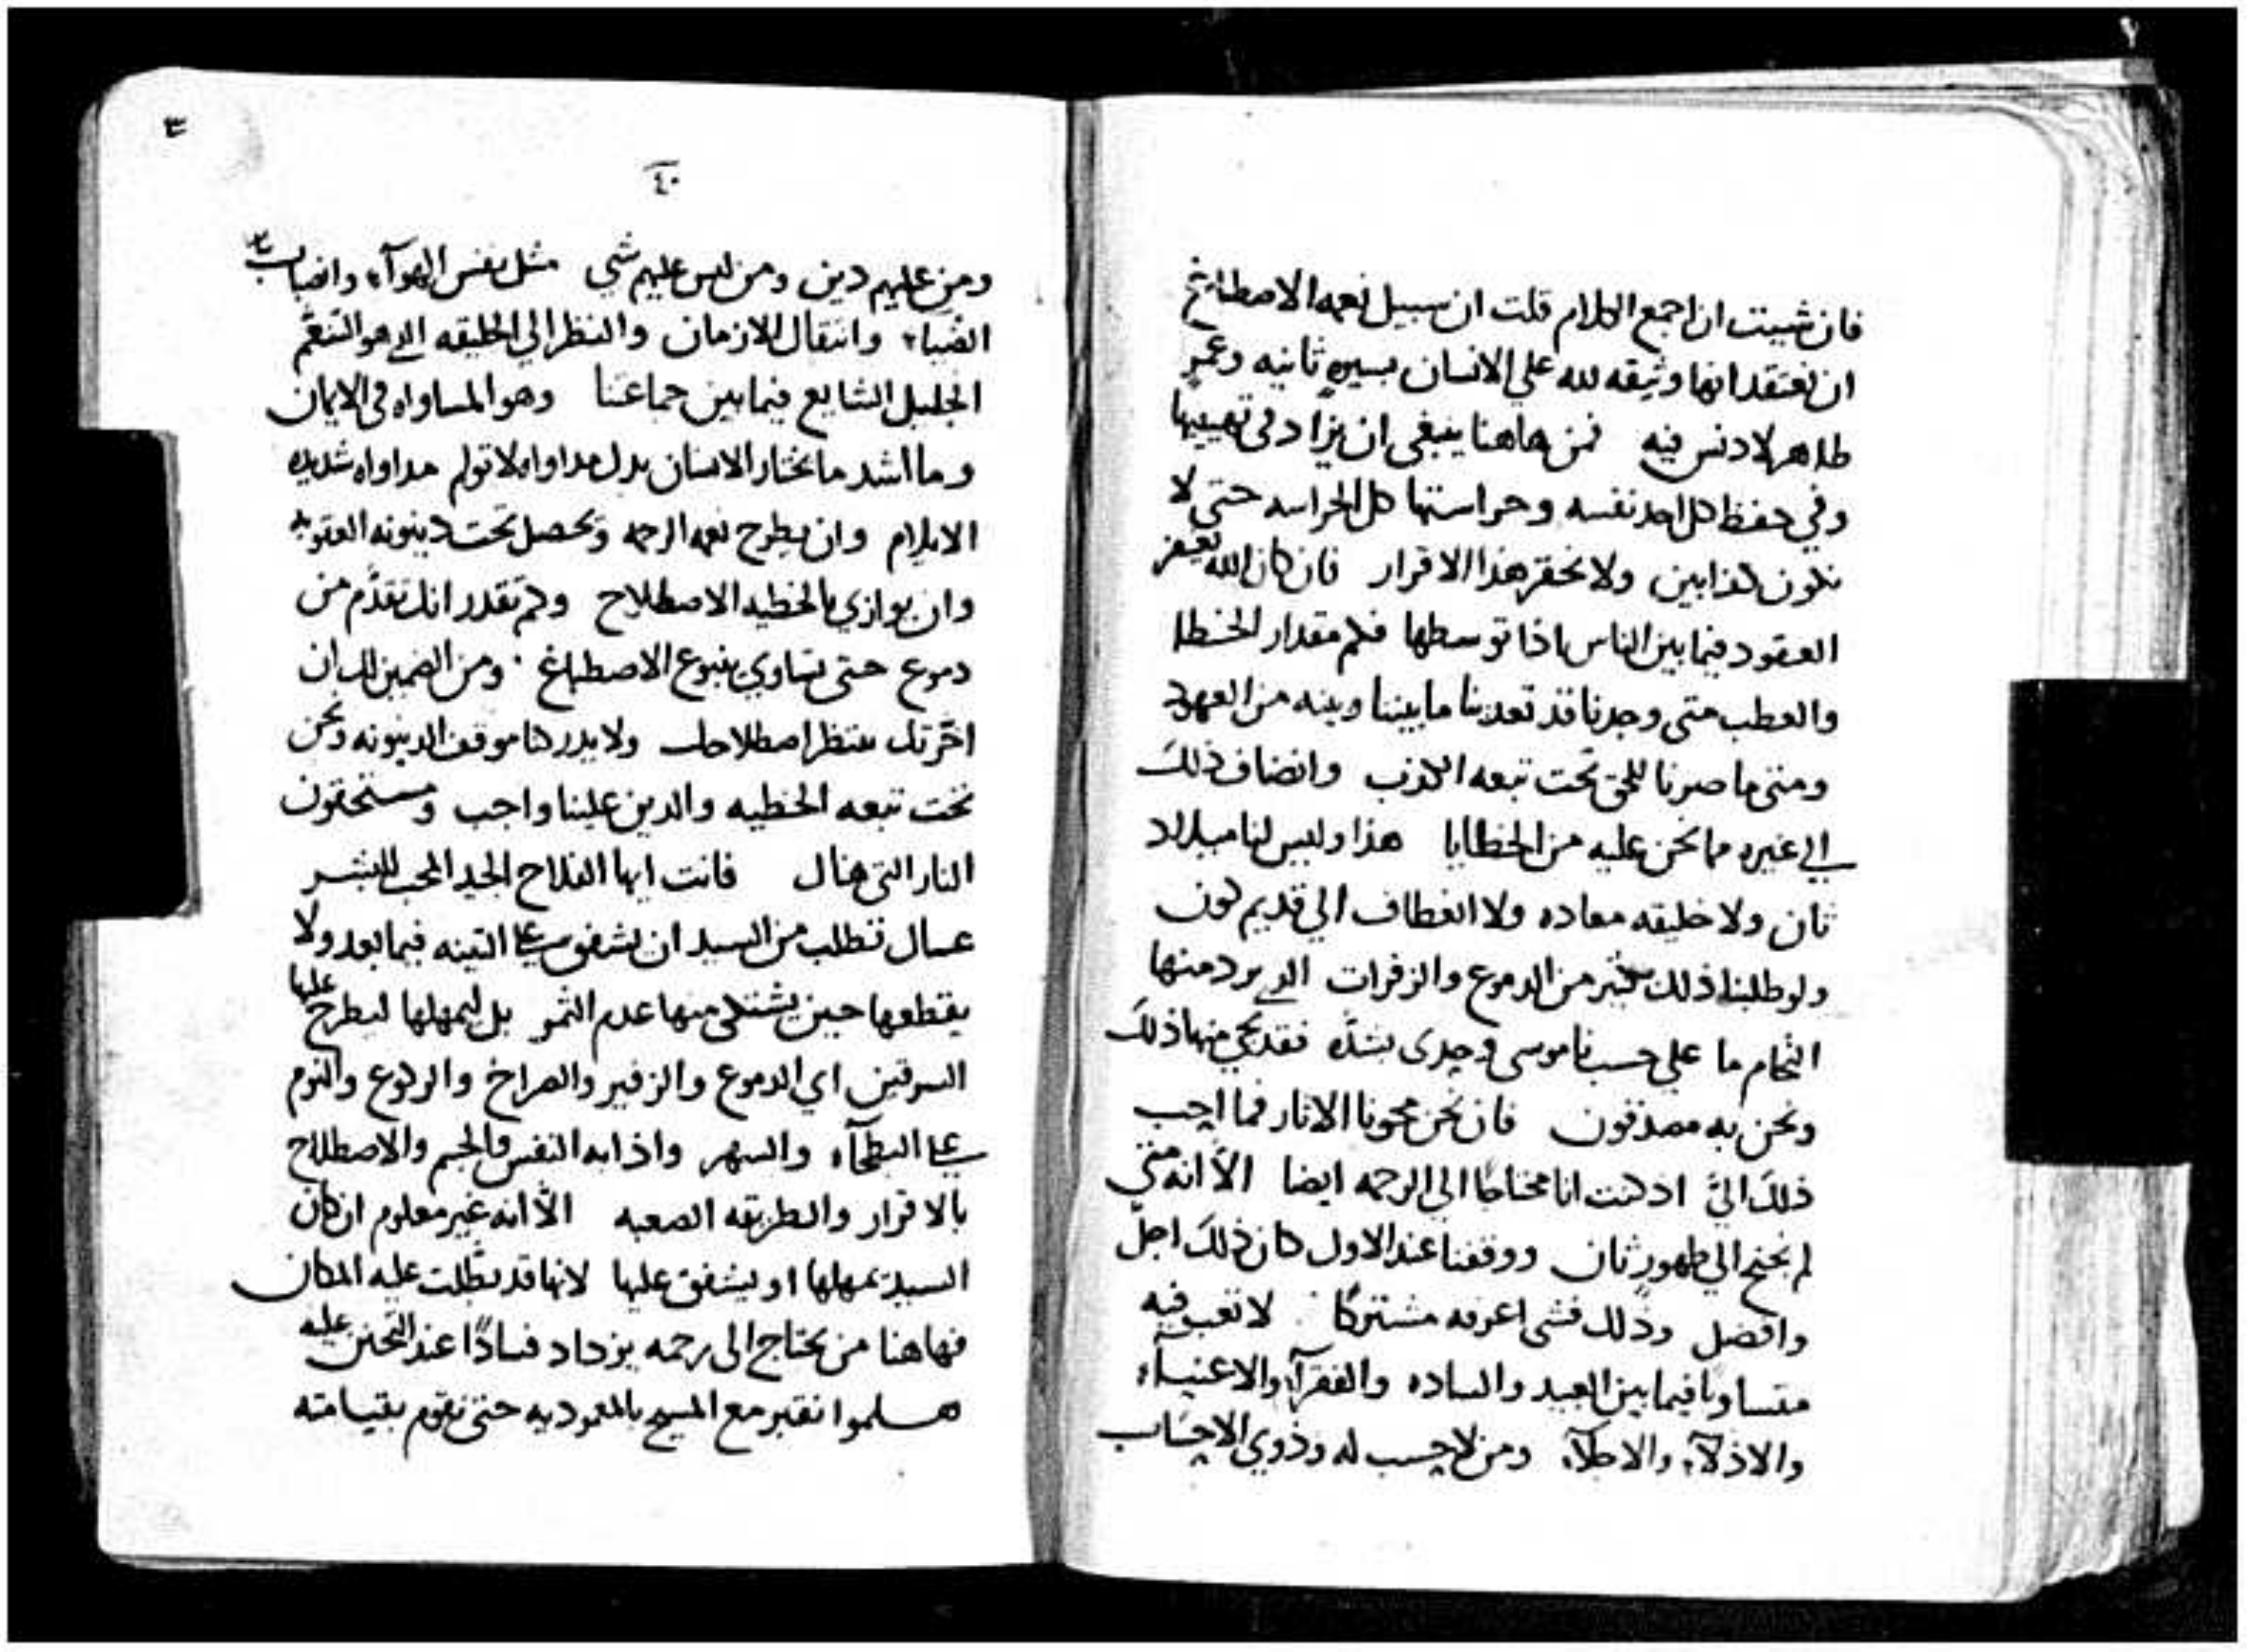 ٢
فان شيت ان اجمع الكلام قلت ان سبيل نعمه الاصطباغ
ان نعتقد انها وثيقه لله علي الانسان بسيرهٍ ثانيه وعمرٍ
طاهر لا دنس فيه فمن هاهنا ينبغي ان يزاد في تهيبها
وفي حفظ كل احد نفسه وحراستها كل الحراسه حتى لا
نكون كذابين ولا نحقر هذا الاقرار فان كان الله
العقود فيما بين الناس اذا توسطها فكم مقدار الخطا
والعطب متى وجدنا قد تعدينا ما بيننا وبينه من العهود
ومتى ما صرنا للحق تحت تبعه الكذب وانضاف ذلك
الي غيره مما نحن عليه من الخطايا هذا وليس لنا ميلاد
ثان ولا خليقه معاده ولا انعطاف الي قديم كون
ولو طلبنا ذلك بكثير من الدموع والزفرات الذي يرد منها
التحام ما علي حسب ناموسي وحدي بشده فقد يجي منها ذلك
ونحن به مصدقون فان نحن محونا الاثار فما احب
ذلك اليَّ اذ كنت انا محتاجًا الى الرحمه ايضا الَّا انه متى
لم نحتج الي طهورٍ ثان ووقفنا عند الاول كان ذلك اجلّ
وافضل وذلك فشي اعرفه مشتركًا لا تعب فيه
متساويا فيما بين العبيد والساده والفقرآء والاغنيآء
والاذلآء والاجلآء ومن لا حسب له وذوي الاحساب
٣
٤٠
ومن عليهم دين ومن ليس عليهم شي مثل نفس الهوآء وانصباب
الضيآء وانتقال الازمان والنظر الي الخليقه الذي هو التنعّم
الجليل الشايع فيما بين جماعتنا وهو المساواه في الايمان
وما اشد ما يختار الانسان بدل مداواه لا تولم مداواه شديده
الايلام وان يطرح نعمه الرحمه ويحصل تحت دينونه العقوبه
وان يوازي بالخطيه الاصطلاح وكم تقدر انك تقدّم من
دموع حتى تساوي ينبوع الاصطباغ ومن الضمين لك ان
اخرتك تنتظر اصطلاحك ولا يدركنا موقف الدينونه ونحن
تحت تبعه الخطيه والدين علينا واجب ومستحقون
النار التي هناك فانت ايها الفلاح الجيد المحب للبشر
عساك تطلب من السيد ان يشفق علي التينه فيما بعد ولا
يقطعها حين يشتكى منها عدم الثمر بل ليمهلها ليطرح عليها
السرقين اي الدموع والزفير والصراخ والركوع والنوم
علي البطحآء والسهر واذابه النفس والجسم والاصطلاح
بالاقرار والطريقه الصعبه الّا انه غير معلوم ان كان
السيد يمهلها او يشفق عليها لانها قد بطَّلت عليه المكان
فهاهنا من يحتاج الى رحمه يزداد فسادًا عند التحنن عليه
هسلموا نقتبر مع المسيح بالمعموديه حتى نقوم بقيامته